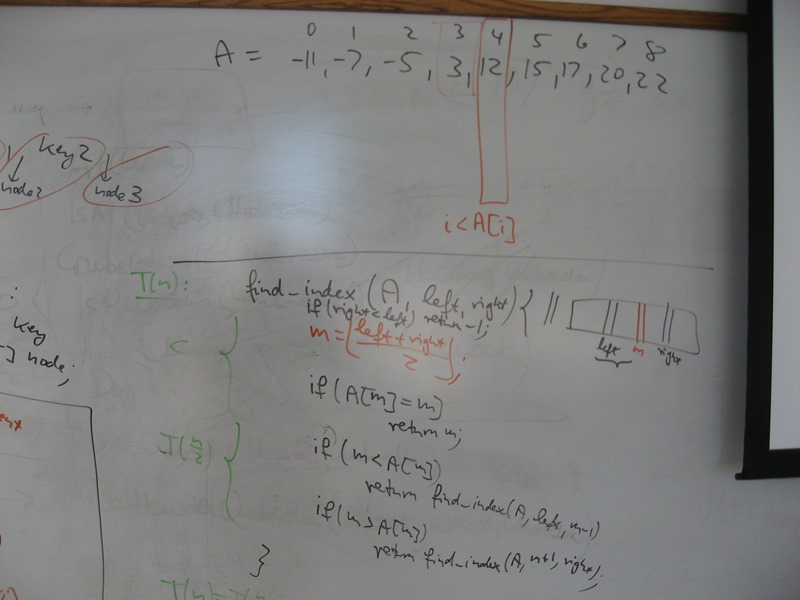 0 1 2 3 4 5 6 7 8
A = -11, -7, -5, 3, 12, 15, 17, 20, 22
key2
node2
node3
i < A[i]
T(n):
find_index(A, left, right) {
if (right < left) return -1;
m = ⌊(left + right)/2⌋;
c
left m right
if (A[m] = m)
return m;
T(n/2)
if (m < A[m])
return find_index(A, left, m-1)
if (m > A[m])
return find_index(A, m+1, right);
}
key
node;